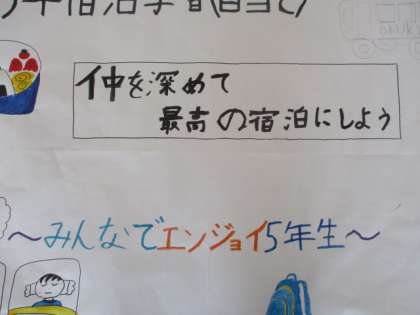 5年宿泊学習(目当て)
仲を深めて
最高の宿泊にしよう
～みんなでエンジョイ5年生～